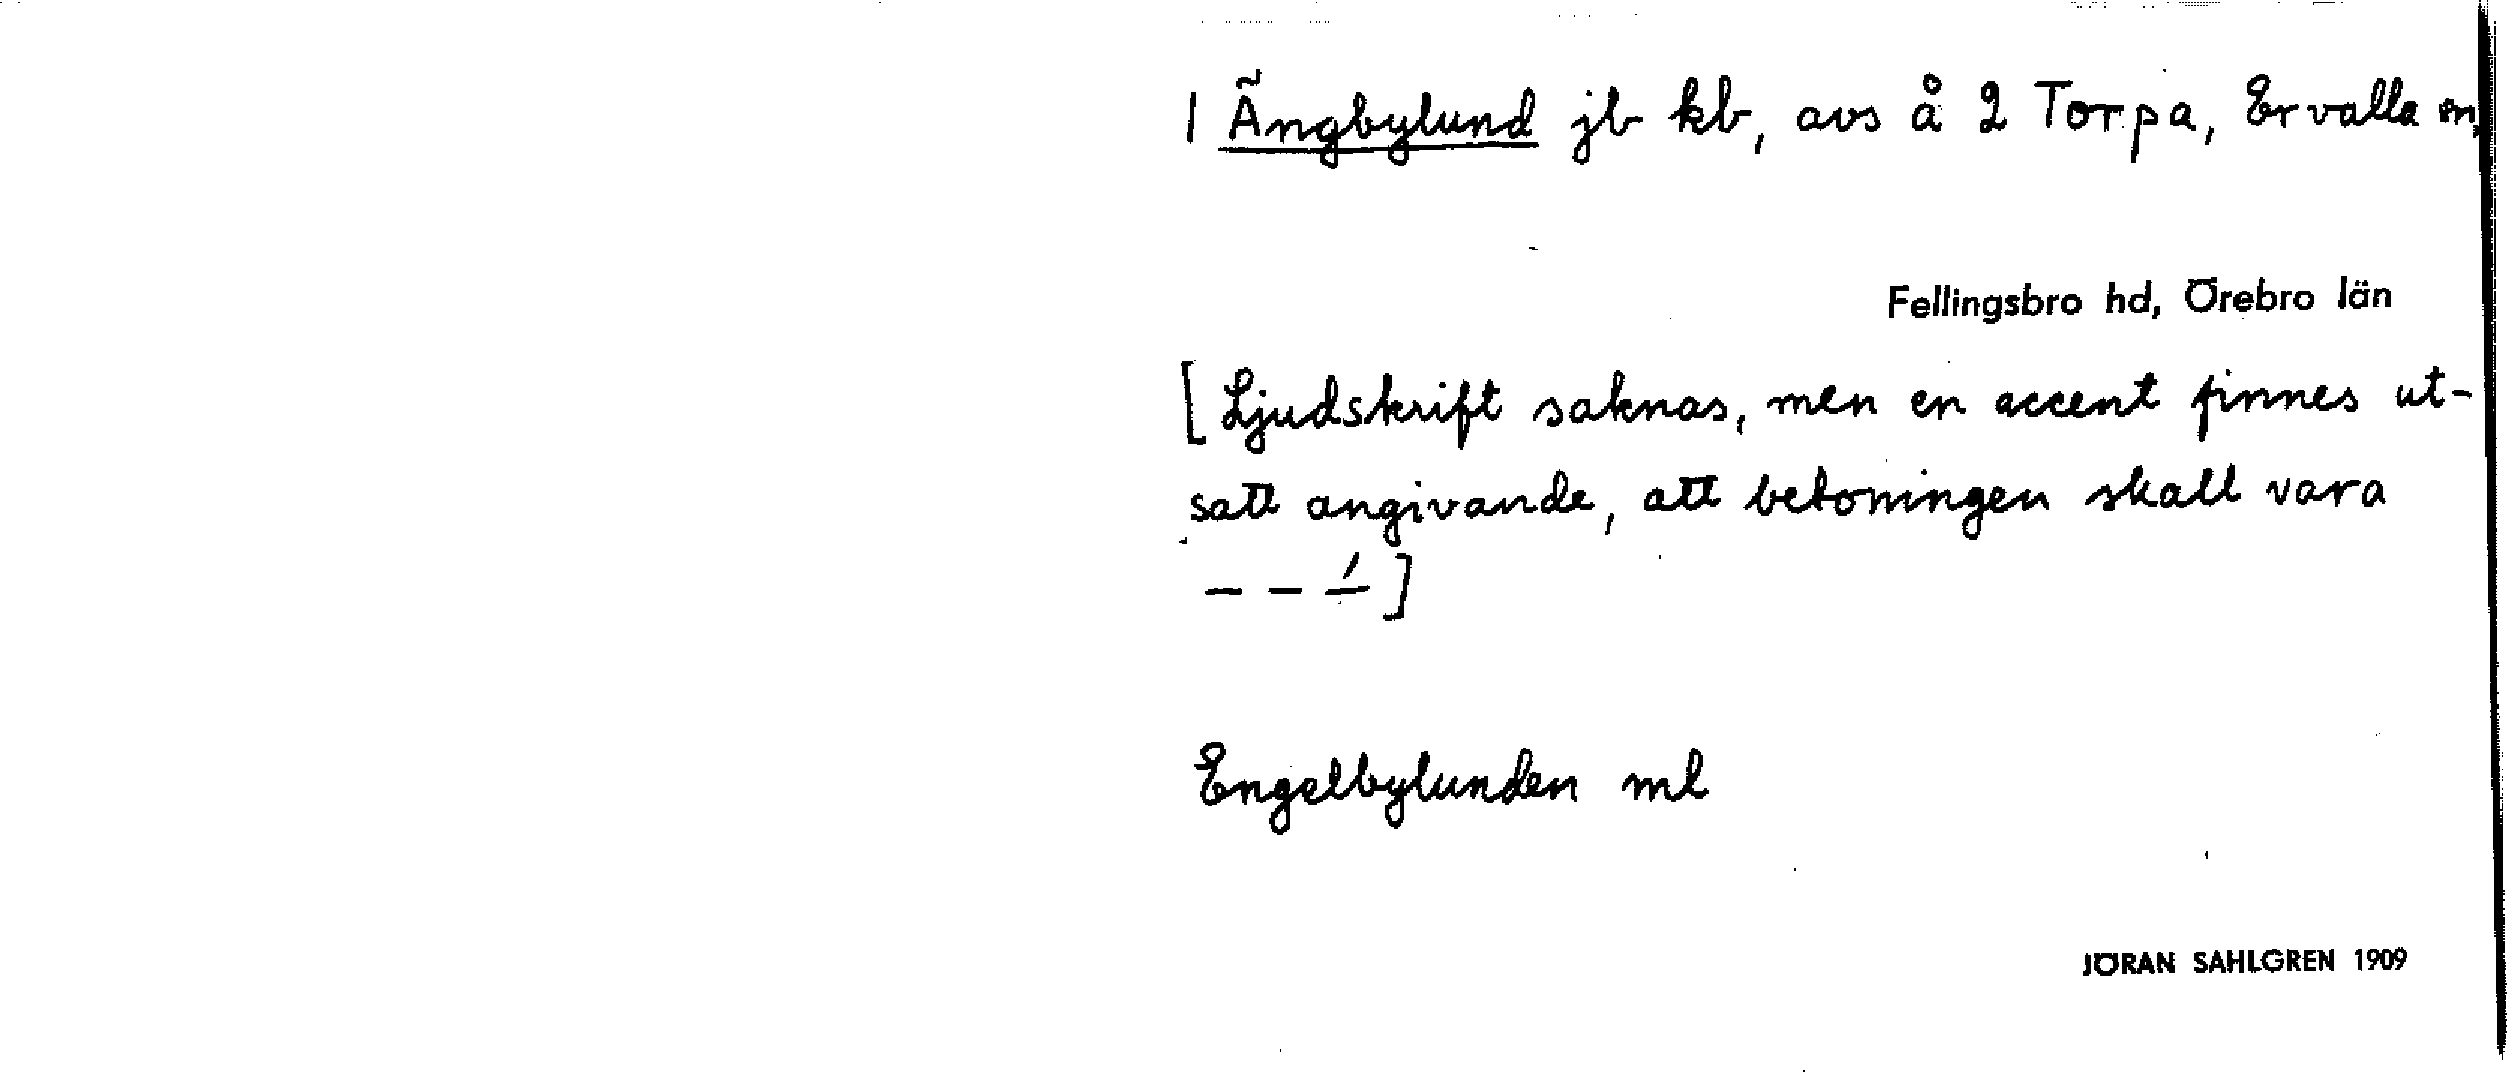 1 Ängbylund jb kb, avs å 2 Torpa, Ervalla sn,
Fellingsbro hd, Örebro län
[Ljudskrift saknas, men en accent finnes ut-
satt angivande, att betoningen skall vara
– – –́ ]
Engelbylunden ml
JÖRAN SAHLGREN 1909